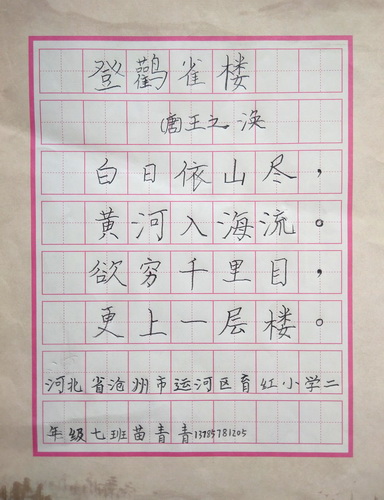 登鹳雀楼
唐王之涣
白日依山尽，
黄河入海流。
欲穷千里目，
更上一层楼。
河北省沧州市运河区育红小学二
年级七班苗青青13785781205